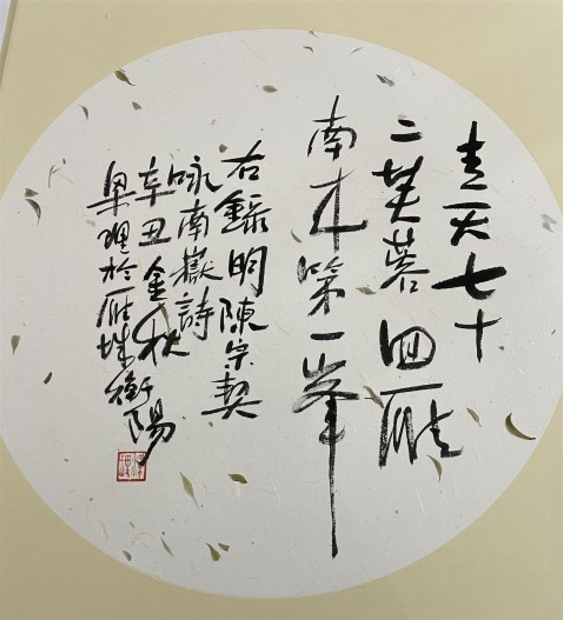 青天七十
二芙蓉回雁
南来第一峯
右錄明陳宗契
咏南嶽詩
辛丑金秋
梁理於雁城衡陽